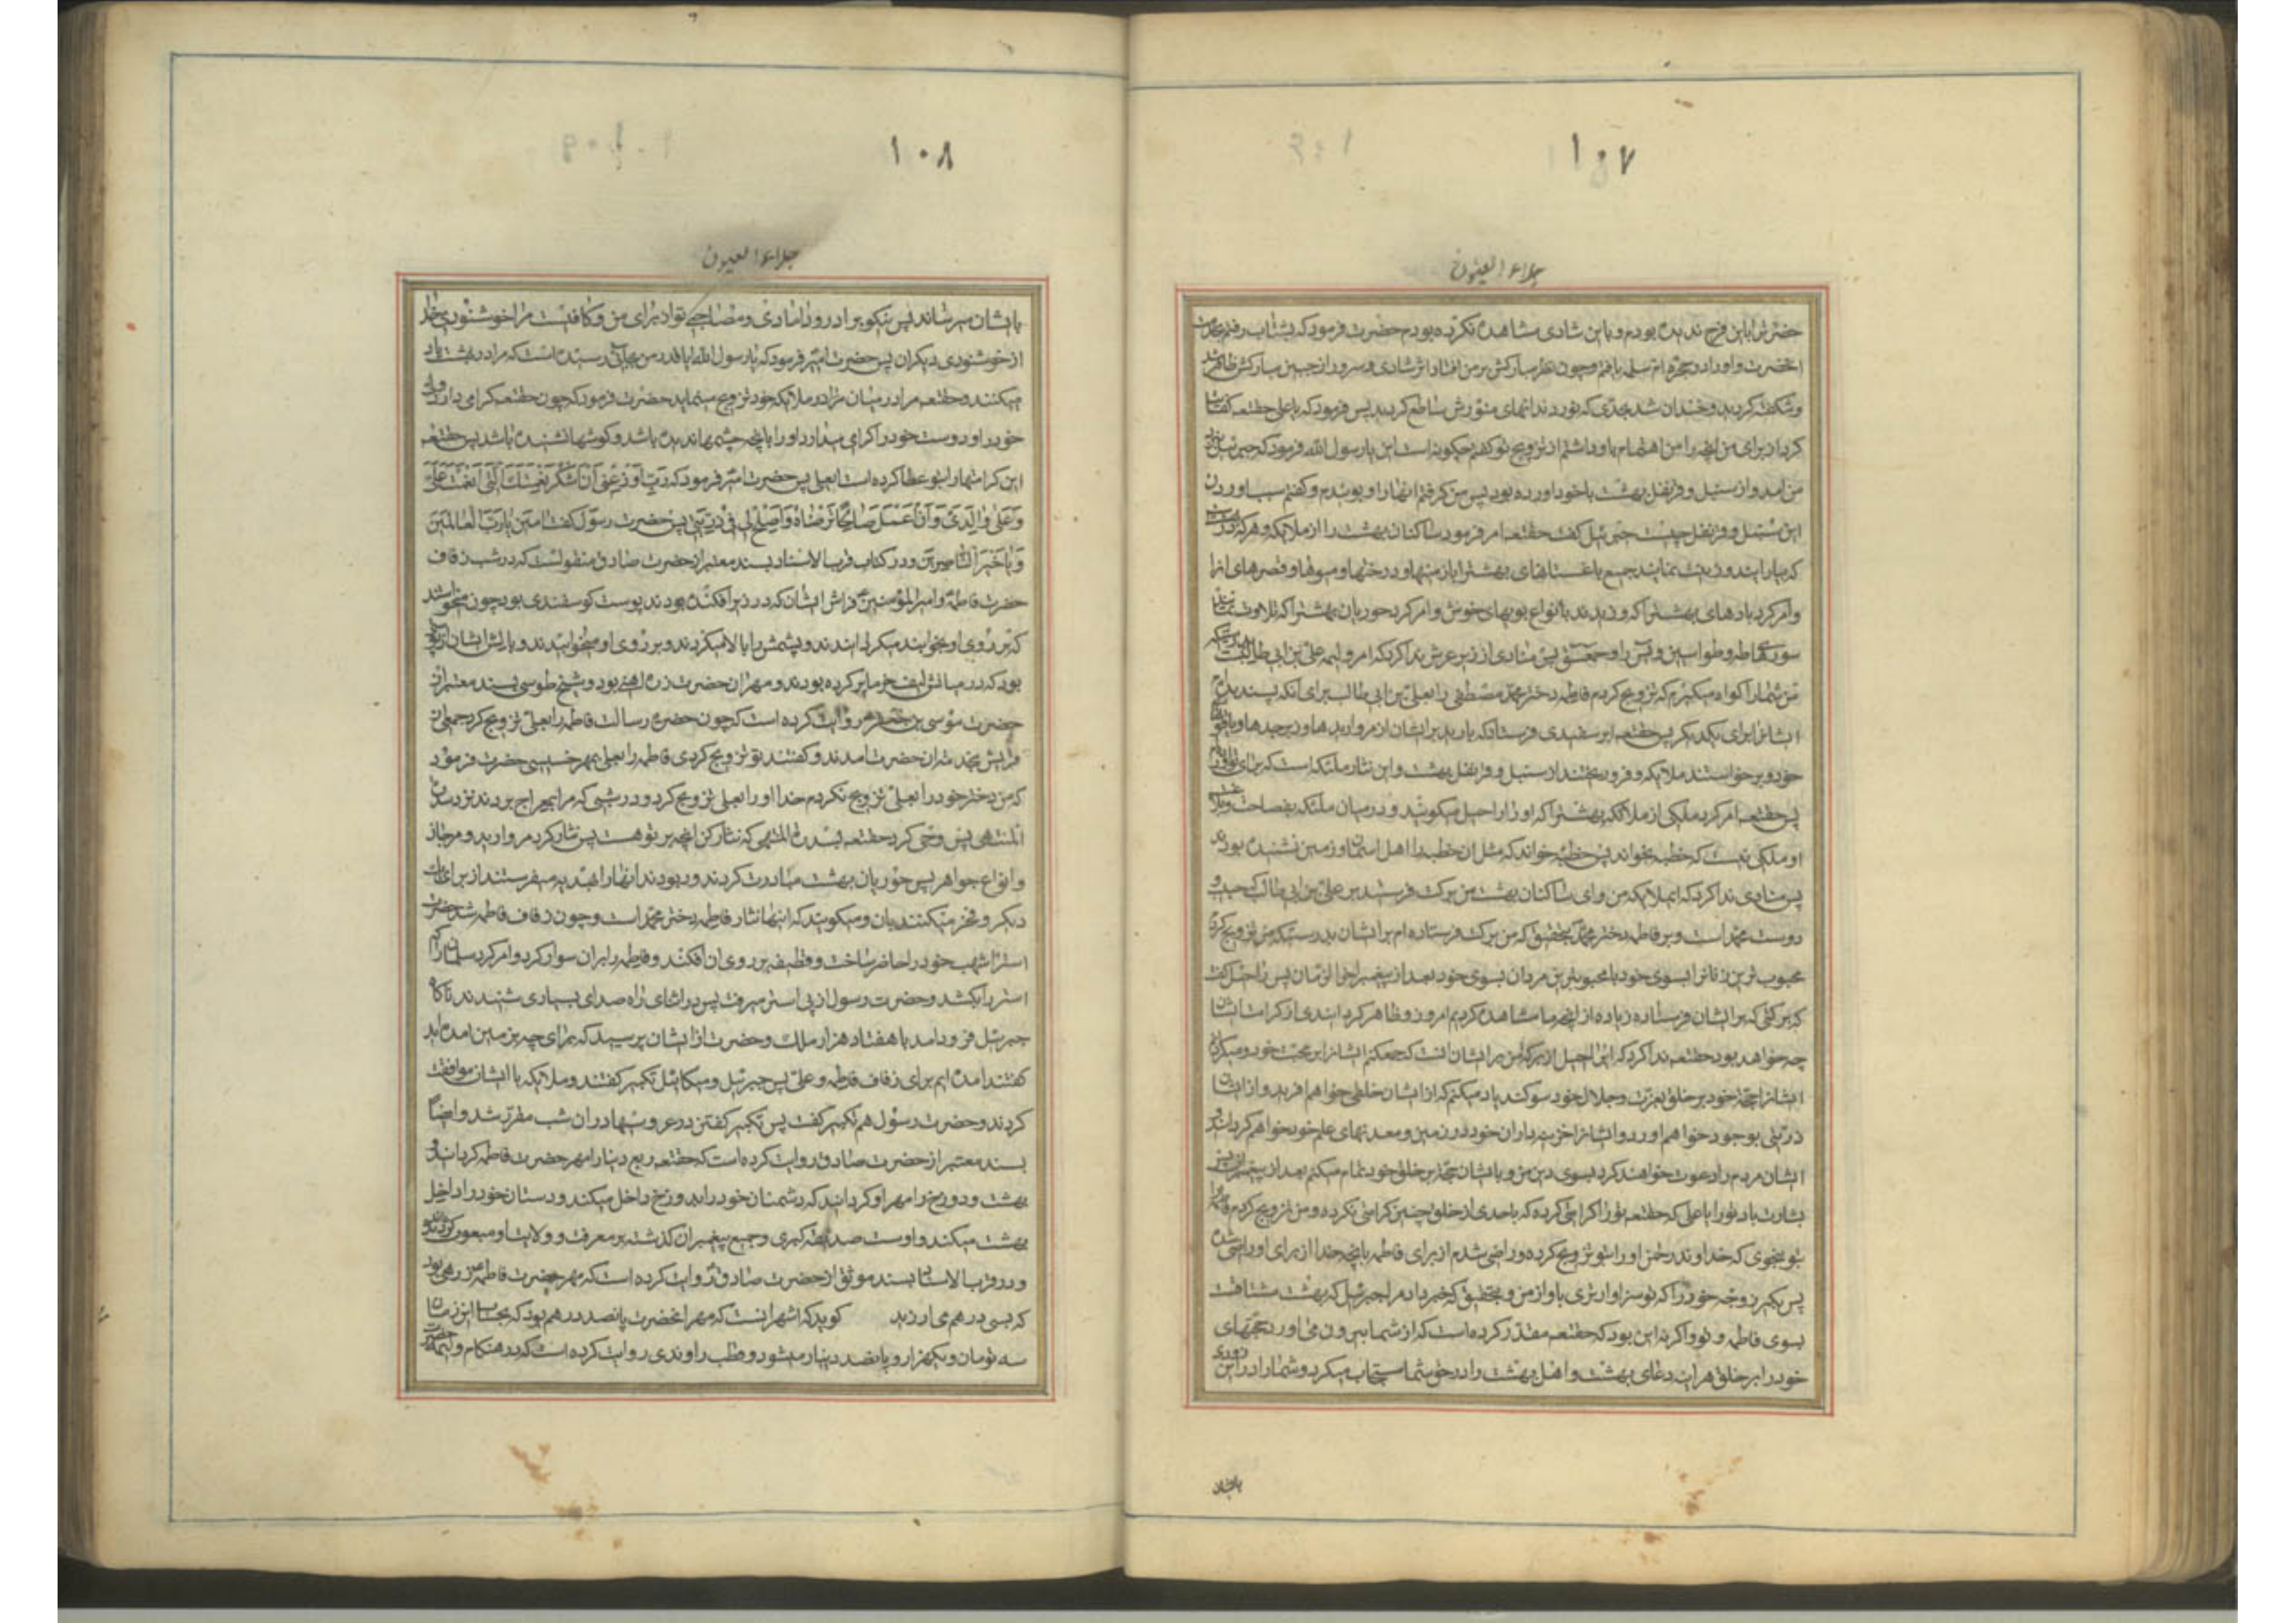 ۱۰۷
جلاء العیون
حضرترا باین فرح ندیده بودم و باین شادی مشاهده نکرده بودم حضرت فرمود که بشتاب رفتم بخدمت
انحضرت و او را در حجره ام سلمه یافتم و چون نظر مبارکش بر من افتاد اثر شادی و سرور از جبین مبارکش ظاهر شد
و شکفته کردید و خندان شد بحدی که نور دندانهای منورش ساطع کردید پس فرمود که یا علی حقتعه کفایت
کرد از برای من انچه را من اهتمام باو داشتم از تزویج تو کفتم چکونه است این یا رسول الله فرمود که جبرئیل نزد
من امد و از سنبل و قرنفل بهشت با خود اورده بود پس من کرفتم انها را و بوئیدم و کفتم سبب اوردن
این سنبل و قرنفل چیست جبرئیل کفت حقتعه امر فرمود ساکنان بهشت را از ملائکه و هر که در
که بیارایند و زینت نمایند جمیع باغستانهای بهشترا با زمینها و درختها و میوها و قصرهای انرا
و امر کرد بادهای بهشترا که وزیدند با انواع بویهای خوش و امر کرد حوریان بهشترا که تلاوت نمایند
سوره طه و طواسین و یس را و حمعسق پس منادی از زیر عرش ندا کرد که امروز ولیمه علی بن ابی طالبست
من شما را کواه میکیرم که تزویج کردم فاطمه دختر محمد مصطفی را بعلی بن ابی طالب برای انکه پسندیدم
ایشانرا برای یکدیکر پس حقتعه ابر سفیدی فرستاد که بارید بر ایشان از مرواریدها و زبرجدها و یاقوتها
خود و برخواستند ملائکه و فرو ریختند از سنبل و قرنفل بهشت و این نثار ملئکه است که برای تو اوردم
پس حقتعه امر کرد ملکی از ملائکه بهشترا که او را راحیل میکویند و در میان ملئکه بفصاحت و بلاغت
او ملکی نیست که خطبه بخواند پس خطبه خواند که مثل ان خطبه را اهل اسمان و زمین نشنیده بودند
پس منادی ندا کرد که ای ملائکه من و ای ساکنان بهشت من برکت فرستید بر علی بن ابی طالب که حبیب و
دوست محمد است و بر فاطمه دختر محمد بتحقیق که من برکت فرستاده ام بر ایشان بدرستیکه من تزویج کردم
محبوب ترین زنانرا بسوی خود با محبوبترین مردان بسوی خود بعد از پیغمبر اخر الزمان پس راحیل کفت
که برکتی که بر ایشان فرستاده زیاده از انچه ما مشاهده کردیم امروز و ظاهر کردانیدی از کرامات ایشان
چه خواهد بود حقتعه ندا کرد که ای راحیل از برکت من بر ایشان انست که جمع کنم ایشانرا بر محبت خود و میکردانم
ایشانرا حجت خود بر خلق بعزت و جلال خود سوکند یاد میکنم که از ایشان خلقی خواهم افرید و از ایشان
ذریتی بوجود خواهم اورد و ایشانرا خزینه داران خود در زمین و معدنهای علم خود خواهم کردانید و
ایشان مردم را دعوت خواهند کرد بسوی دین من و بایشان حجت بر خلق خود تمام میکنم بعد از پیغمبران
بشارت باد تو را یا علی که حقتعه تو را کرامتی کرده که باحدی از خلق چنین کرامتی نکرده و من تزویج کردم فاطمه را
بتو بنحوی که خداوند رحمن او را بتو تزویج کرده و راضی شدم از برای فاطمه بانچه خدا از برای او راضی شده
پس بکیر زوجه خود را که تو سزاوار تری باو از من و بتحقیق که خبر داد مرا جبرئیل که بهشت مشتاقست
بسوی فاطمه و تو و اکر نه این بود که حقتعه مقدر کرده است که از شما بیرون می اورد حجتهای
خود را بر خلق هر اینه دعای بهشت و اهل بهشت را در حق شما مستجاب میکرد و شما را در این زودی
بایشان
۱۰۸
جلاء العیون
بایشان میرساند پس نیکو برادر و دامادی و مصاحبی تو از برای من و کافیست مرا خوشنودی خدا
از خوشنودی دیکران پس حضرت امیر فرمود که یا رسول الله ایا قدر من بجائی رسیده است که مرا در بهشت یاد
میکنند و حقتعه مرا در میان ملائکه خود تزویج مینماید حضرت فرمود که چون حقتعه کرامی دارد ولی
خود را و دوست خود را کرامی میدارد او را بانچه چشمها ندیده باشد و کوشها نشنیده باشد پس حقتعه
این کرامتها را بتو عطا کرده است ایعلی پس حضرت امیر فرمود که رَبِّ اَوْزِعْنی اَنْ اَشْکُرَ نِعْمَتَکَ الَّتی اَنْعَمْتَ عَلَیَّ
وَ عَلی والِدَیَّ وَ اَنْ اَعْمَلَ صالِحًا تَرْضاهُ وَ اَصْلِحْ لی فی ذُرِّیَّتی پس حضرت رسول کفت امین یا رب العالمین
وَ یا خَیْرَ النّاصِرینَ و در کتاب قرب الاسناد بسند معتبر از حضرت صادق منقولست که در شب زفاف
حضرت فاطمه و امیر المؤمنین فراش ایشان که در زیر افکنده بودند پوست کوسفندی بود چون میخواستند
که بر روی او بخوابند میکردانیدند و پشمش را بالا میکردند و بر روی او میخوابیدند و بالش ایشان از پوستی
بود که در میانش لیف خرما پر کرده بودند و مهر ان حضرت زره اهنی بود و شیخ طوسی بسند معتبر از
حضرت موسی بن جعفر روایت کرده است که چون حضرت رسالت فاطمه را بعلی تزویج کرد جمعی از
قریش بخدمت ان حضرت امدند و کفتند تو تزویج کردی فاطمه را بعلی بمهر خسیسی حضرت فرمود
که من دختر خود را بعلی تزویج نکردم خدا او را بعلی تزویج کرد و در شبی که مرا بمعراج بردند نزد سدرة
المنتهی پس وحی کرد حقتعه بسدرة المنتهی که نثار کن انچه بر تو هست پس نثار کرد مروارید و مرجان
و انواع جواهر پس حوریان بهشت مبادرت کردند و ربودند انها را و هدیه میفرستند از برای یک
دیکر و فخر میکنند بان و میکویند که اینها نثار فاطمه دختر محمد است و چون زفاف فاطمه شد حضرت
استر اشهب خود را حاضر ساخت و قطیفه بر روی ان افکند و فاطمه را بران سوار کرد و امر کرد سلمان را که
استر را بکشد و حضرت رسول از پی استر میرفت پس در اثنای راه صدای بسیاری شنیدند ناکاه
جبرئیل فرود امد با هفتاد هزار ملک و حضرت از ایشان پرسید که برای چه بزمین امده اید
کفتند امده ایم برای زفاف فاطمه و علی پس جبرئیل و میکائیل تکبیر کفتند و ملائکه با ایشان موافقت
کردند و حضرت رسول هم تکبیر کفت پس تکبیر کفتن در عروسیها در ان شب مقرر شد و ایضا
بسند معتبر از حضرت صادق روایت کرده است که حقتعه ربع دنیا را مهر حضرت فاطمه کردانید و
بهشت و دوزخ را مهر او کردانید که دشمنان خود را بدوزخ داخل میکند و دوستان خود را داخل
بهشت میکند و اوست صدیقه کبری و جمیع پیغمبران کذشته بر معرفت و ولایت او مبعوث کردیدند
و در قرب الاسناد بسند موثق از حضرت صادق روایت کرده است که مهر حضرت فاطمه زرهی بود
که بسی درهم می ارزید کوید که اشهر انست که مهر انحضرت پانصد درهم بود که بحساب این زمان
سه تومان و یکهزار و پانصد دینار میشود و قطب راوندی روایت کرده است که در هنکام ولیمه حضرت